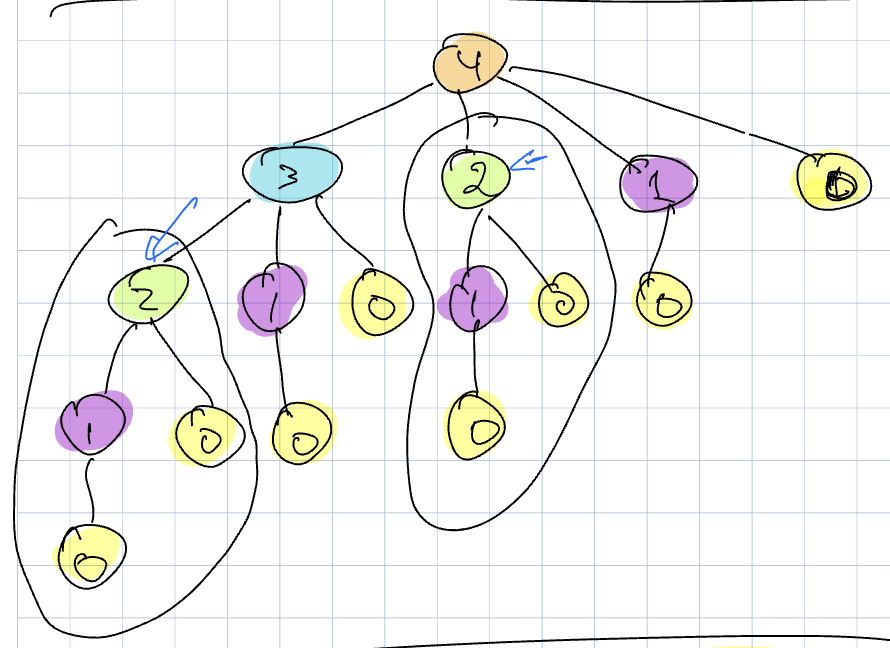 4
3 2 1 0
2 1 0 1 0 0
1 0 0 0
0